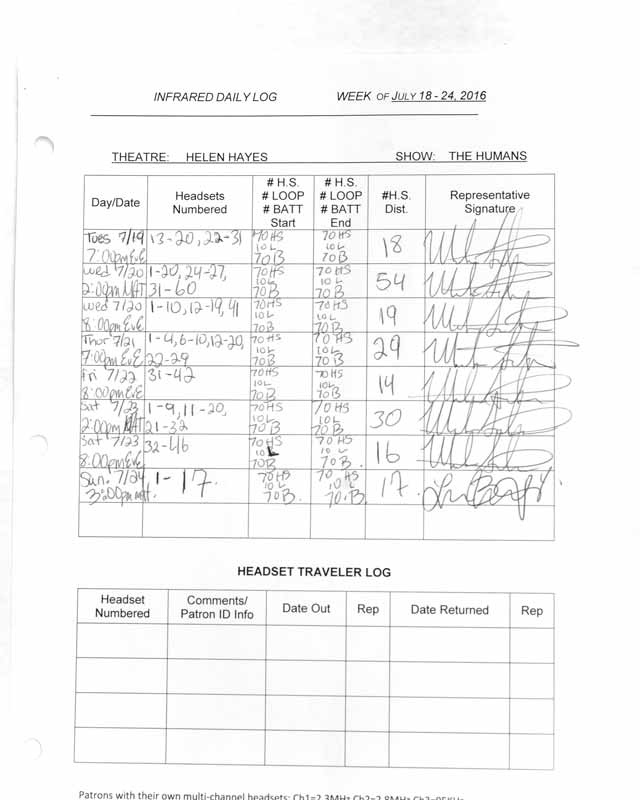 INFRARED DAILY LOG WEEK OF JULY 18 - 24, 2016
THEATRE: HELEN HAYES SHOW: THE HUMANS
Day/Date
Headsets
Numbered
# H.S.
# LOOP
# BATT
Start
# H.S.
# LOOP
# BATT
End
#H.S.
Dist.
Representative
Signature
Tues 7/19
7:00pm Eve
13-20, 22-31
70 HS
10 L
70 B
70 HS
10 L
70 B
18
Wed 7/20
2:00pm MAT
1-20, 24-27,
31-60
70 HS
10 L
70 B
70 HS
10 L
70 B
54
Wed 7/20
8:00pm Eve
1-10, 12-19, 41
70 HS
10 L
70 B
70 HS
10 L
70 B
19
Thor 7/21
7:00pm Eve
1-4, 6-10, 12-20,
22-29
70 HS
10 L
70 B
70 HS
10 L
70 B
29
Fri 7/22
8:00pm Eve
31-42
70 HS
10 L
70 B
70 HS
10 L
70 B
14
Sat 7/23
2:00pm MAT
1-9, 11-20,
21-32
70 HS
10 L
70 B
70 HS
10 L
70 B
30
Sat 7/23
8:00pm Eve
32-46
70 HS
10 L
70 B
70 HS
10 L
70 B.
16
Sun. 7/24
3:00pm mat.
1-17.
70 HS
10 L
70 B
70 HS
10 L
70. B.
17.
HEADSET TRAVELER LOG
Headset
Numbered
Comments/
Patron ID Info
Date Out
Rep
Date Returned
Rep
Patrons with their own multi-channel headsets: Ch1=2.3MHz Ch2=2.8MHz